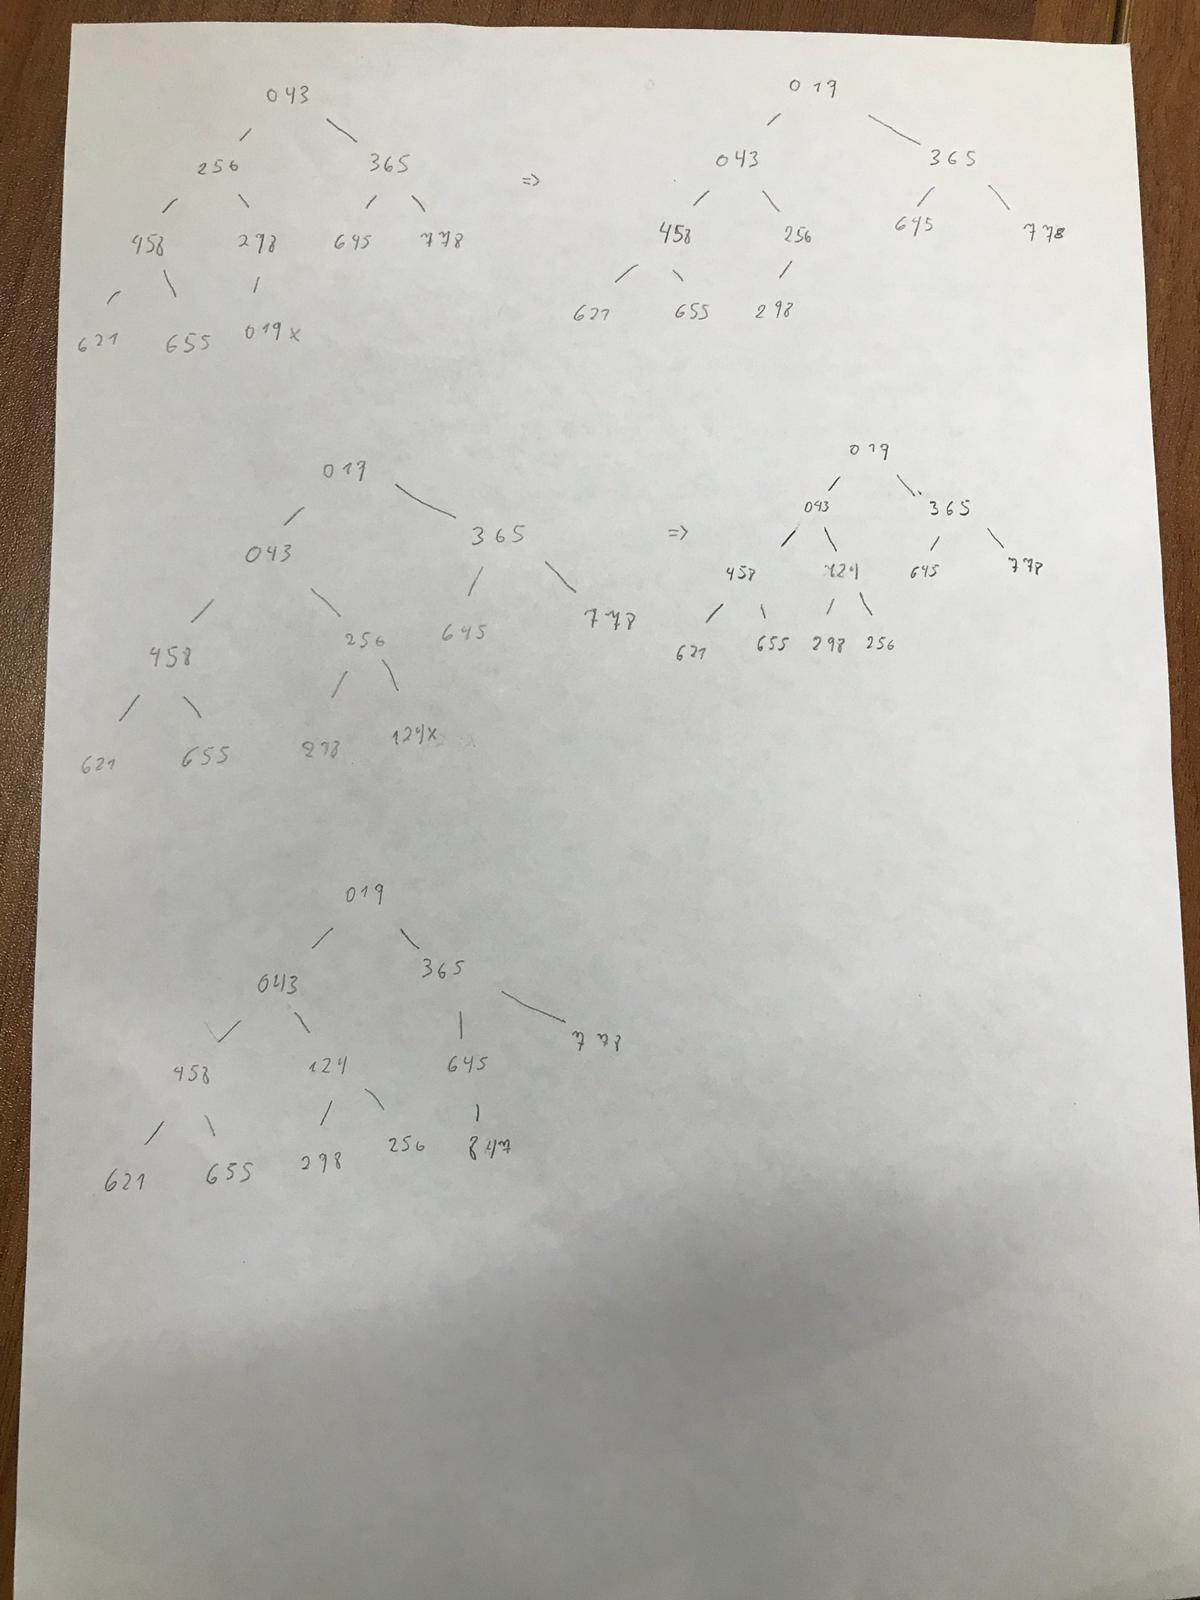 043
256 365
458 298 645 778
621 655 019x
=>
019
043 365
458 256 645 778
621 655 298
019
043 365
458 256 645 778
621 655 298 124x
=>
019
043 365
458 124 645 778
621 655 298 256
019
043 365
458 124 645 778
621 655 298 256 847